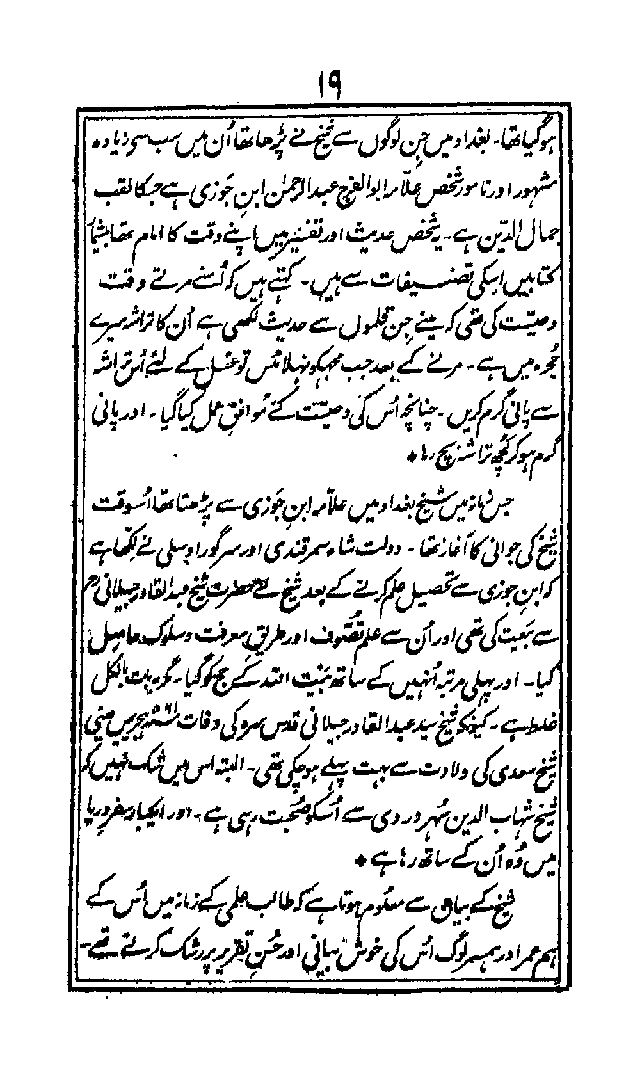 ۱۹
ہوگیا تھا۔ بغداد میں جن لوگوں سے شیخ نے پڑھا تھا اُن میں سب سے زیادہ
مشہور اور نامور شخص علامہ ابوالفرج عبدالرحمٰن ابنِ جَوزی ہے جسکا لقب
جمال الدّین ہے۔ یہ شخص حدیث اور تفسیر میں اپنے وقت کا امام تھا بیشمار
کتابیں اسکی تصنیفات سے ہیں۔ کہتے ہیں کہ اُسنے مرتے وقت
وصیّت کی تھی کہ مینے جن قلموں سے حدیث لکھی ہے اُن کا تراشہ میرے
حُجرہ میں ہے۔ مرنے کے بعد جب مجھکو نہلائیں تو غسل کے لئے اُس تراشہ
سے پانی گرم کریں۔ چنانچہ اُس کی وصیّت کے مُوافق عمل کیا گیا۔ اور پانی
گرم ہوکر کُچھ تراشہ بچ رہا *
جس زمانہ میں شیخ بغداد میں علامہ ابنِ جَوزی سے پڑھتا تھا اُسوقت
شیخ کی جوانی کا آغاز تھا۔ دولت شاہ سمرقندی اور سرگور اوسلی نے لکھا ہے
کہ ابنِ جوزی سے تحصیلِ علم کرنے کے بعد شیخ نے حضرت شیخ عبدالقادر جیلانی رح
سے بَیعت کی تھی اور اُن سے علمِ تصوّف اور طریقِ معرفت و سلوک حاصل
کیا۔ اور پہلی مرتبہ اُنہیں کے ساتھ بَیت اللہ کے حج کو گیا۔ مگر یہ بات بالکل
غلط ہے۔ کیونکہ شیخ سید عبدالقادر جیلانی قدس سرہ کی وفات ۵۶۱ ہجری میں یعنی
شیخ سعدی کی ولادت سے بہت پہلے ہو چکی تھی۔ البتہ اس میں شک نہیں کہ
شیخ شہاب الدین سُہروردی سے اُسکو صُحبت رہی ہے۔ اور ایکبار سفرِ دریا
میں وُہ اُن کے ساتھ رہا ہے *
شیخ کے بیان سے معلوم ہوتا ہے کہ طالب علمی کے زمانہ میں اُس کے
ہم عمر اور ہمسر لوگ اُس کی خوش بیانی اور حُسنِ تقریر پر رشک کرتے تھے۔